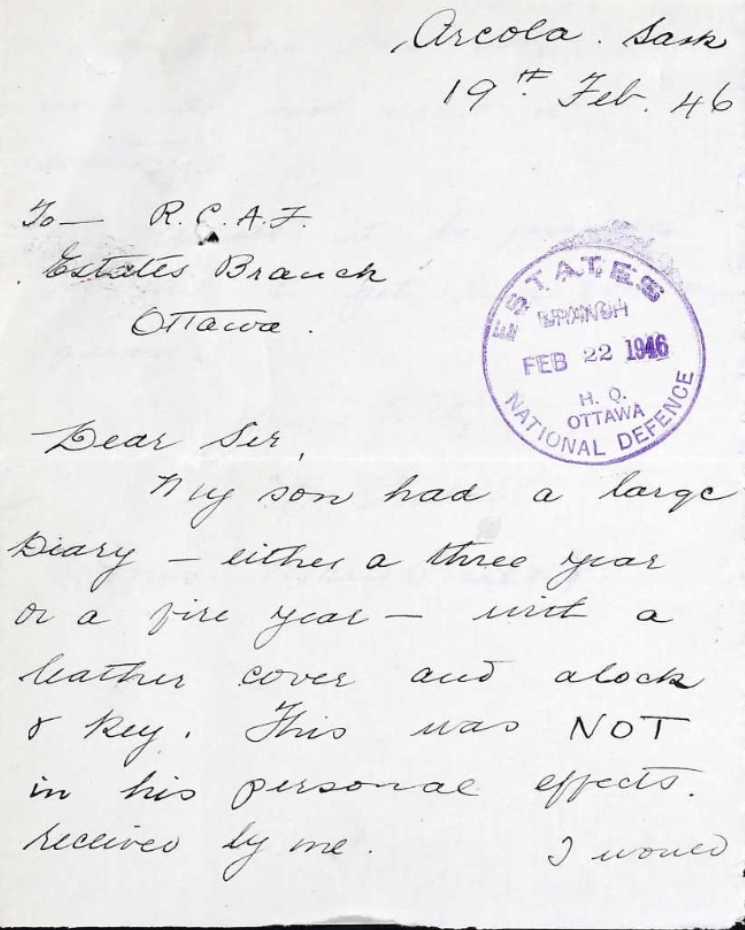 Arcola. Sask
19th Feb. 46
To— R.C.A.F.
Estates Branch
Ottawa.
ESTATES
BRANCH
FEB 22 1946
H. Q.
OTTAWA
NATIONAL DEFENCE
Dear Sir,
My son had a large
Diary — either a three year
or a five year — with a
leather cover and a lock
& key. This was NOT
in his personal effects.
received by me. I would